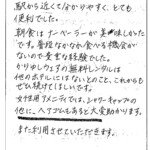 駅から近くて分かりやすく、とても
便利でした。
朝食はナーベーラーが美味しかった
です。普段なかなか食べる機会が
ないので貴重な経験でした。
かりゆしウェアの無料レンタルは
他のホテルにはないとのこと、これからも
ぜひ続けてほしいです。
女性用アメニティでは、シャワーキャップの
他に、ヘアゴムもあると大変助かります。
また利用させていただきます。